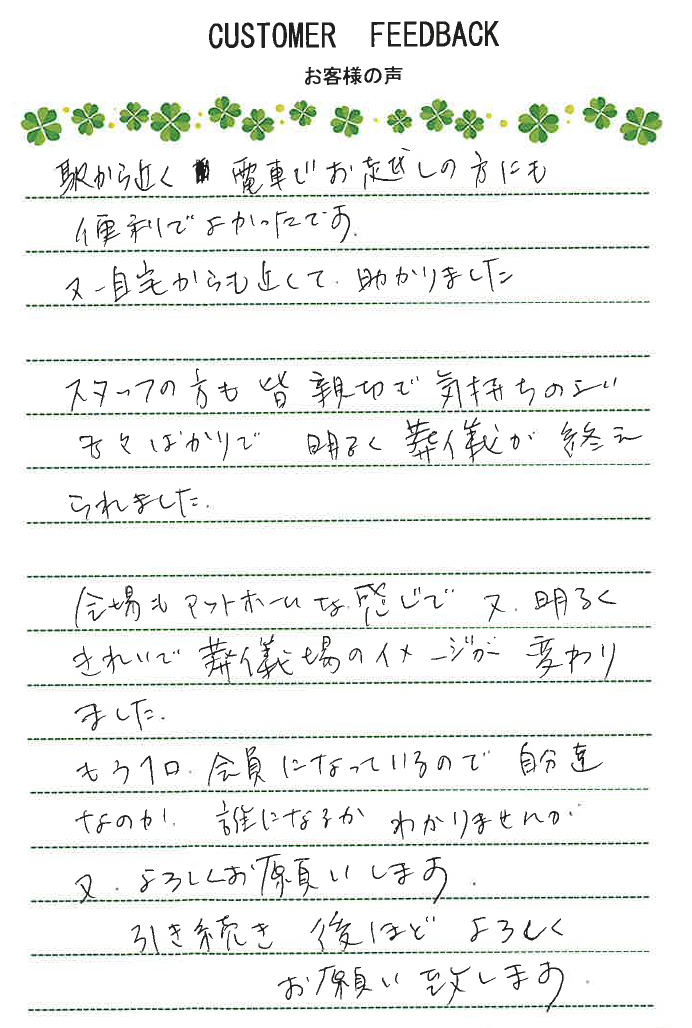 CUSTOMER FEEDBACK
お客様の声
駅から近く 電車でお越しの方にも
便利でよかったです。
又、自宅からも近くて、助かりました
スタッフの方も 皆 親切で 気持ちのよい
方々ばかりで 明るく 葬儀が 終え
られました。
会場もアットホームな感じで 又、明るく
きれいで 葬儀場のイメージが 変わり
ました。
もう1口、会員になっているので 自分達
なのか、誰になるか わかりませんが
又、よろしくお願いします。
引き続き 後ほど よろしく
お願い致します。